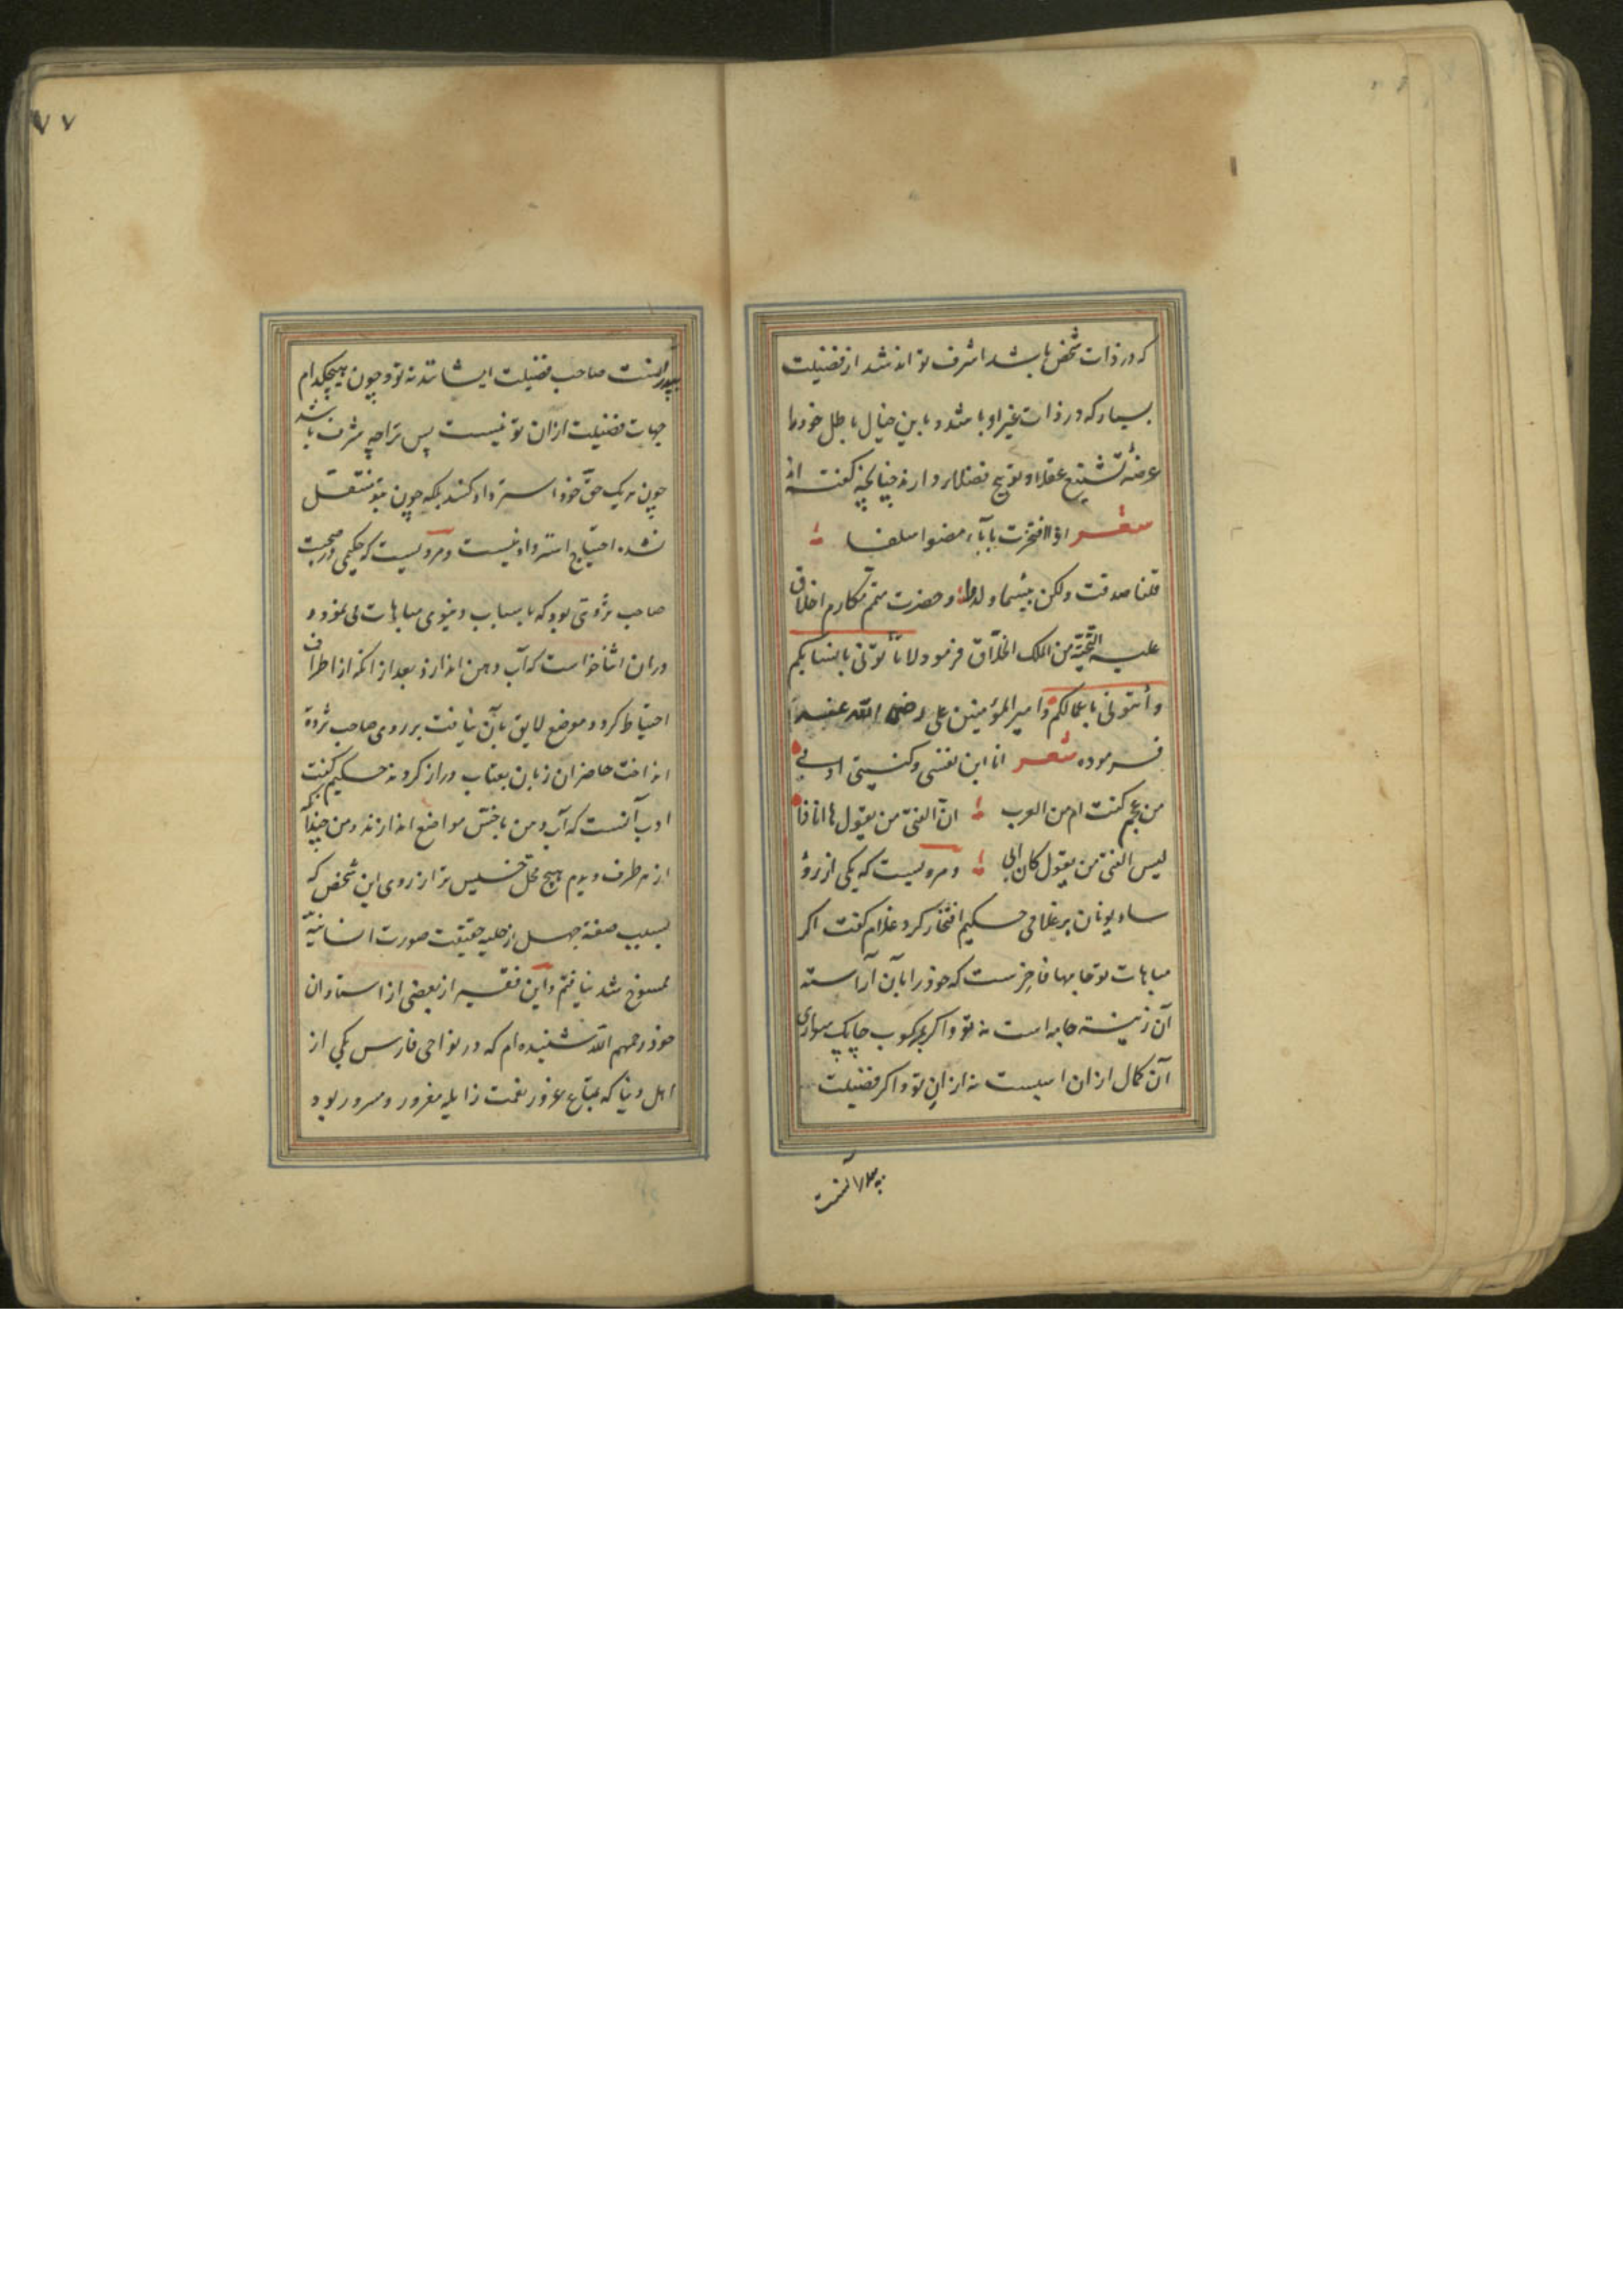 که در ذات شخص باشد اشرف تواند شد از فضیلت
بسیار که در ذات غیر او باشد و باین خیال باطل خود را
عرضهٔ تشنیع عقلا و توبیخ فضلا دارند چنانچه گفته اند
شعر اذا افتخرت بآباء مضوا سلفا
قلنا صدقت ولکن بئسما ولدوا و حضرت متمم مکارم اخلاق
علیه التحیّة من الملک الخلّاق فرمود لا تأتونی بانسابکم
وأتونی باعمالکم و امیر المؤمنین علی رضی الله عنه
فرموده شعر انا ابن نفسی وکنیتی ادبی
من عجم کنت ام من العرب انّ الفتی من یقول ها انا ذا
لیس الفتی من یقول کان ابی و مرویست که یکی از رؤ
ساء یونان بر غلامی حکیم افتخار کرد غلام گفت اکر
مباهات تو جامهاء فاخرست که خود را بآن آراسته
آن زینت جامه است نه تو و اکر بمرکوب چابک سواری
آن کمال ازان اسپست نه ازان تو و اکر فضیلت
پدرانست
۷۷
پدرانست صاحب فضیلت ایشانند نه تو و چون هیچکدام
جهات فضیلت ازان تو نیست پس ترا چه شرف باشد
چون هر یک حقّ خود استرداد کنند بلکه چون بتو منتقل
نشده احتیاج استرداد نیست و مرویست که حکیمی در صحبت
صاحب ثروتی بود که باسباب دنیوی مباهات می نمود و
دران اثنا خواست که آب دهن اندازد بعد از انکه از اطراف
احتیاط کرد و موضع لایق بآن نیافت بر روی صاحب ثروة
انداخت حاضران زبان بعتاب دراز کردند حکیم گفت
ادب آنست که آب دهن باخسّ مواضع اندازند و من چندانکه
از هر طرف دیدم هیچ محلّ خسیس تر از روی این شخص که
بسبب صفة جهل از حلیه حقیقت صورت انسانیّه
ممسوخ شد نیافتم و این فقیر از بعضی از استادان
خود رحمهم الله شنیده ام که در نواحی فارس یکی از
اهل دنیا که بمتاع غرور نعمت زایله مغرور و مسرور بود